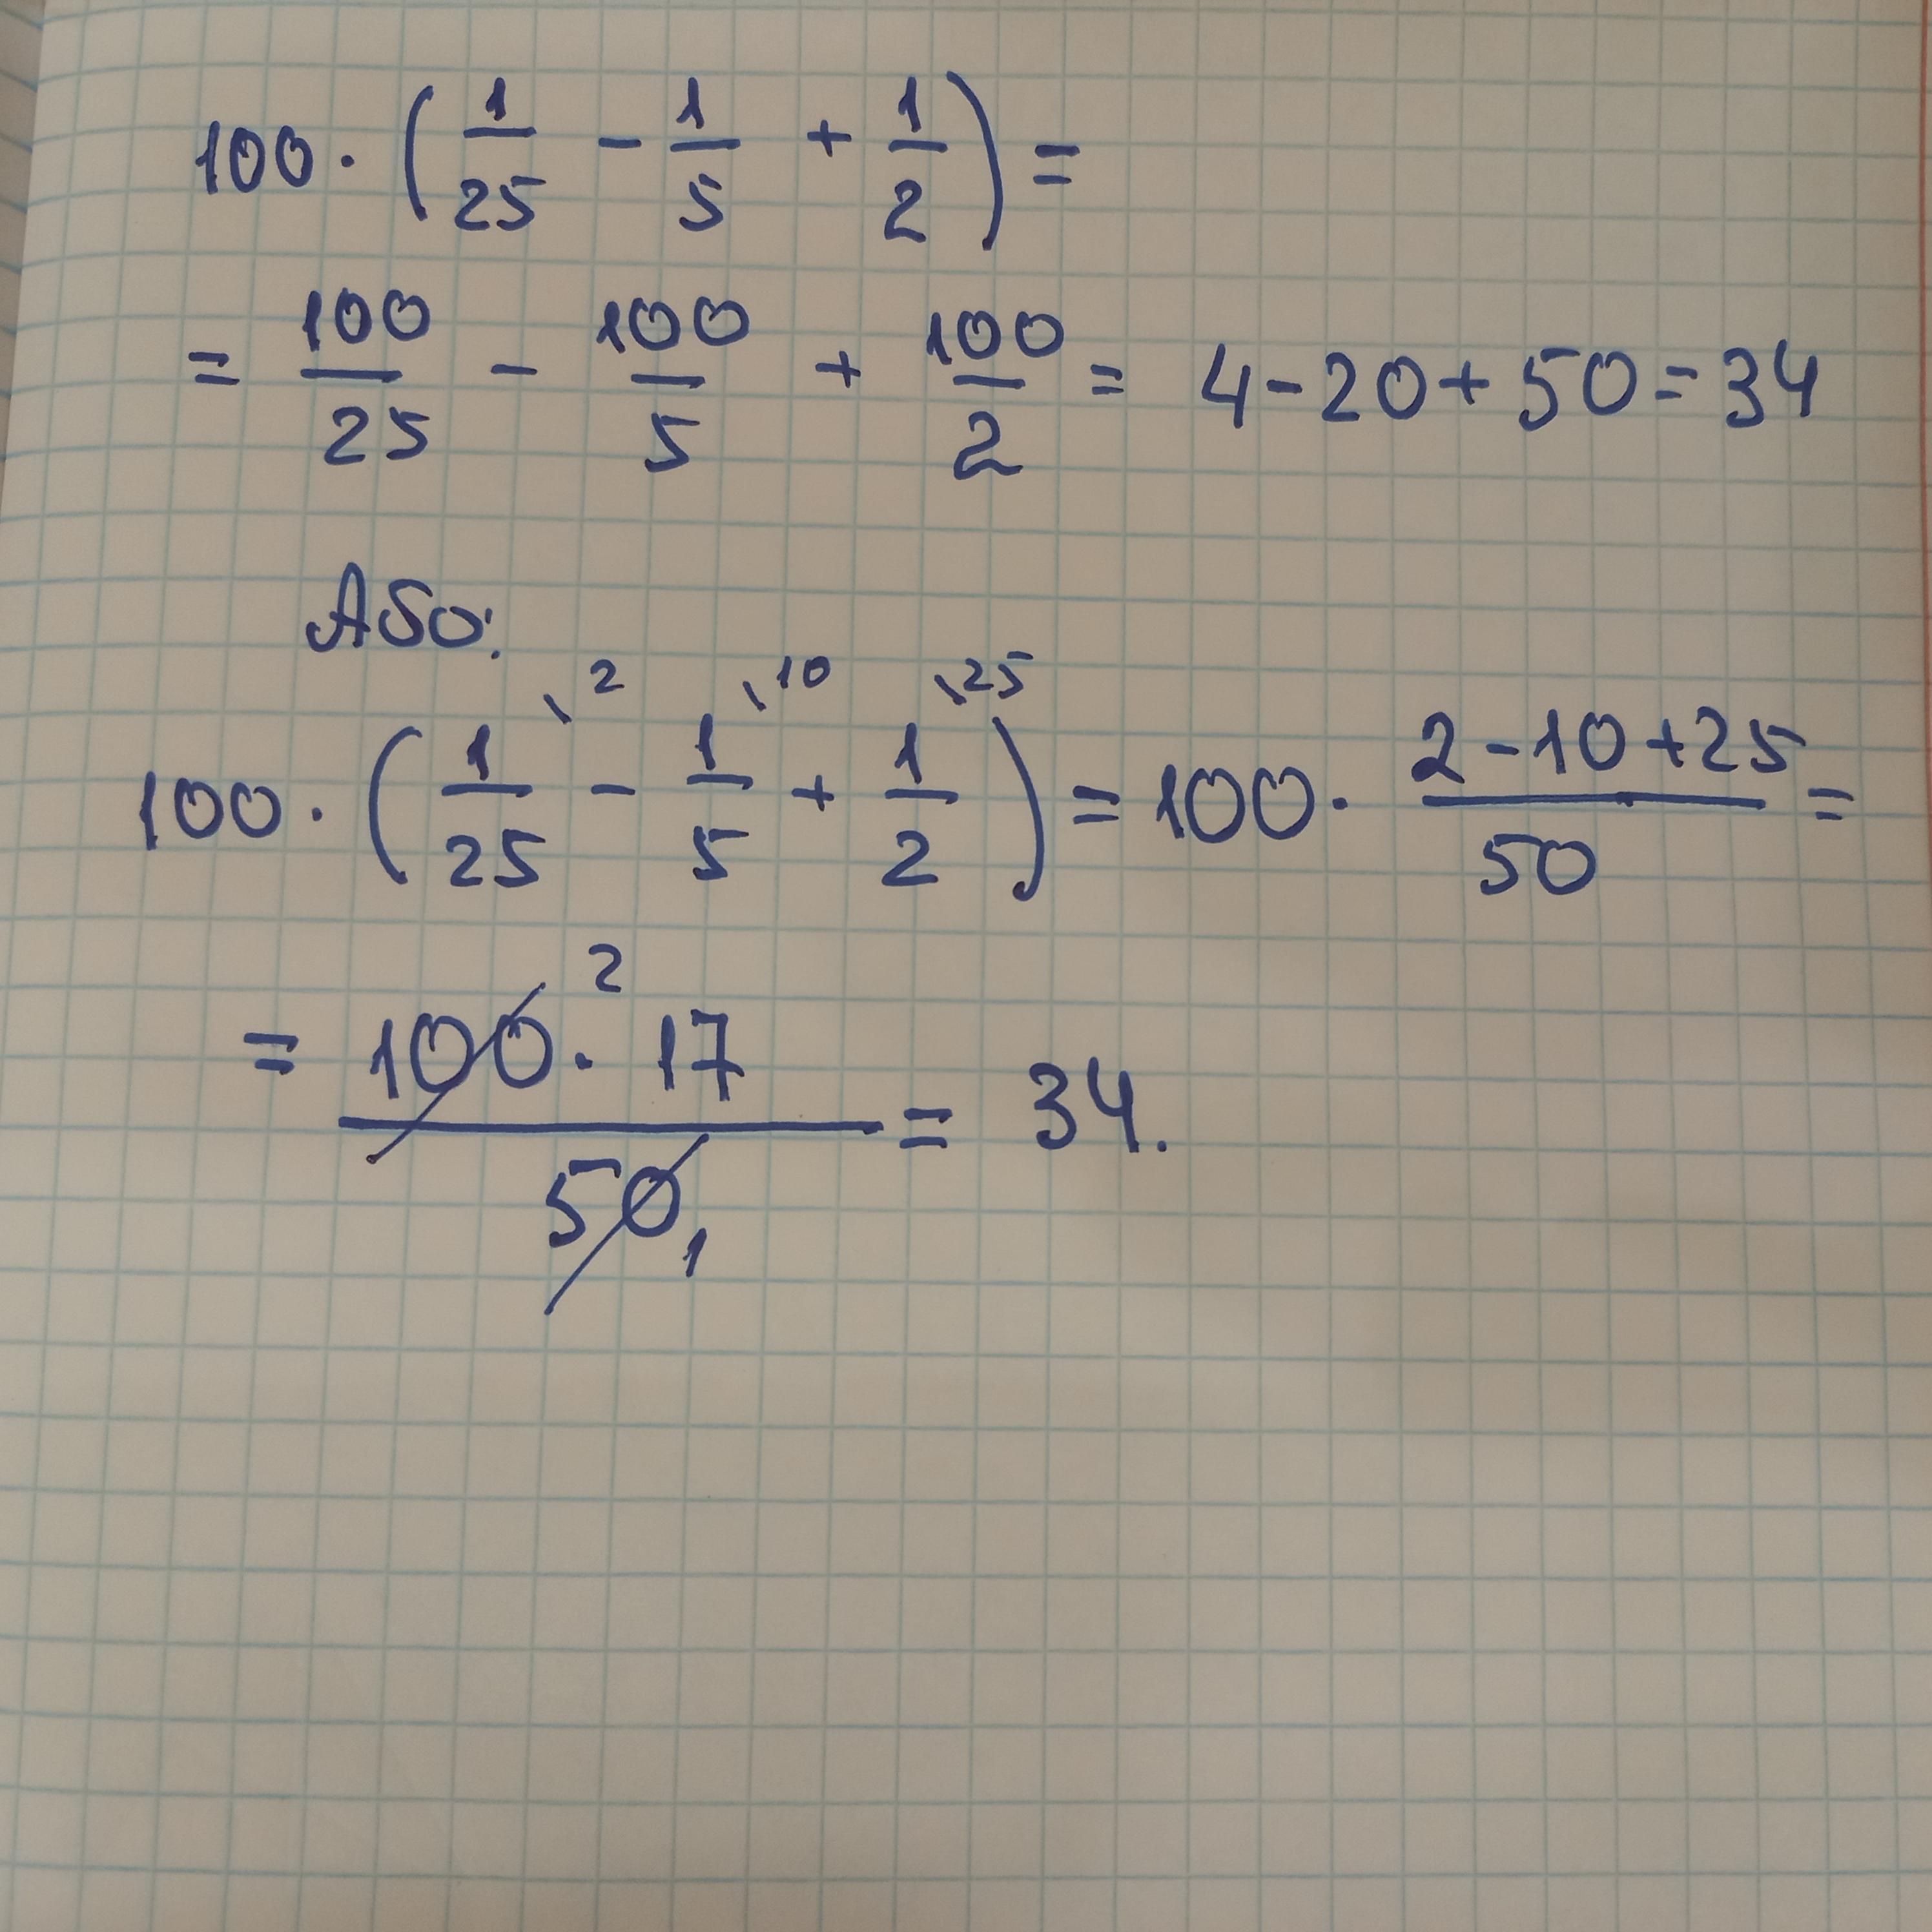 100 · (1/25 - 1/5 + 1/2) =
= 100/25 - 100/5 + 100/2 = 4 - 20 + 50 = 34
Або:
100 · (1/25 \2 - 1/5 \10 + 1/2 \25) = 100 · (2 - 10 + 25)/50 =
= 100 2 · 17/50 1 = 34.